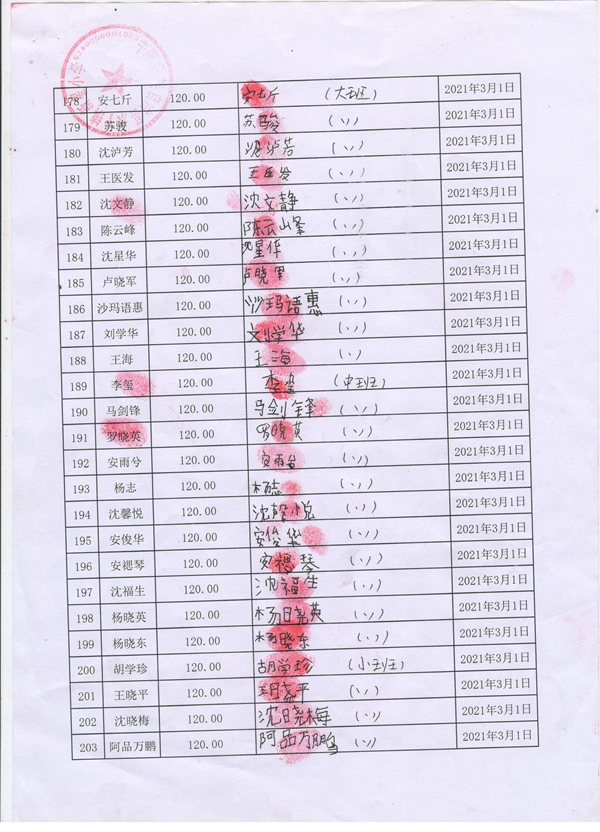 178 安七斤 120.00 安七斤 (大班) 2021年3月1日
179 苏骏 120.00 苏骏 (〃) 2021年3月1日
180 沈泸芳 120.00 沈泸芳 (〃) 2021年3月1日
181 王医发 120.00 王医发 (〃) 2021年3月1日
182 沈文静 120.00 沈文静 (〃) 2021年3月1日
183 陈云峰 120.00 陈云峰 (〃) 2021年3月1日
184 沈星华 120.00 沈星华 (〃) 2021年3月1日
185 卢晓军 120.00 卢晓军 (〃) 2021年3月1日
186 沙玛语惠 120.00 沙玛语惠 (〃) 2021年3月1日
187 刘学华 120.00 刘学华 (〃) 2021年3月1日
188 王海 120.00 王海 (〃) 2021年3月1日
189 李玺 120.00 李玺 (中班) 2021年3月1日
190 马剑锋 120.00 马剑锋 (〃) 2021年3月1日
191 罗晓英 120.00 罗晓英 (〃) 2021年3月1日
192 安雨兮 120.00 安雨兮 (〃) 2021年3月1日
193 杨志 120.00 杨志 (〃) 2021年3月1日
194 沈馨悦 120.00 沈馨悦 (〃) 2021年3月1日
195 安俊华 120.00 安俊华 (〃) 2021年3月1日
196 安禗琴 120.00 安禗琴 (〃) 2021年3月1日
197 沈福生 120.00 沈福生 (〃) 2021年3月1日
198 杨晓英 120.00 杨晓英 (〃) 2021年3月1日
199 杨晓东 120.00 杨晓东 (〃) 2021年3月1日
200 胡学珍 120.00 胡学珍 (小班) 2021年3月1日
201 王晓平 120.00 王晓平 (〃) 2021年3月1日
202 沈晓梅 120.00 沈晓梅 (〃) 2021年3月1日
203 阿品万鹏 120.00 阿品万鹏 (〃) 2021年3月1日